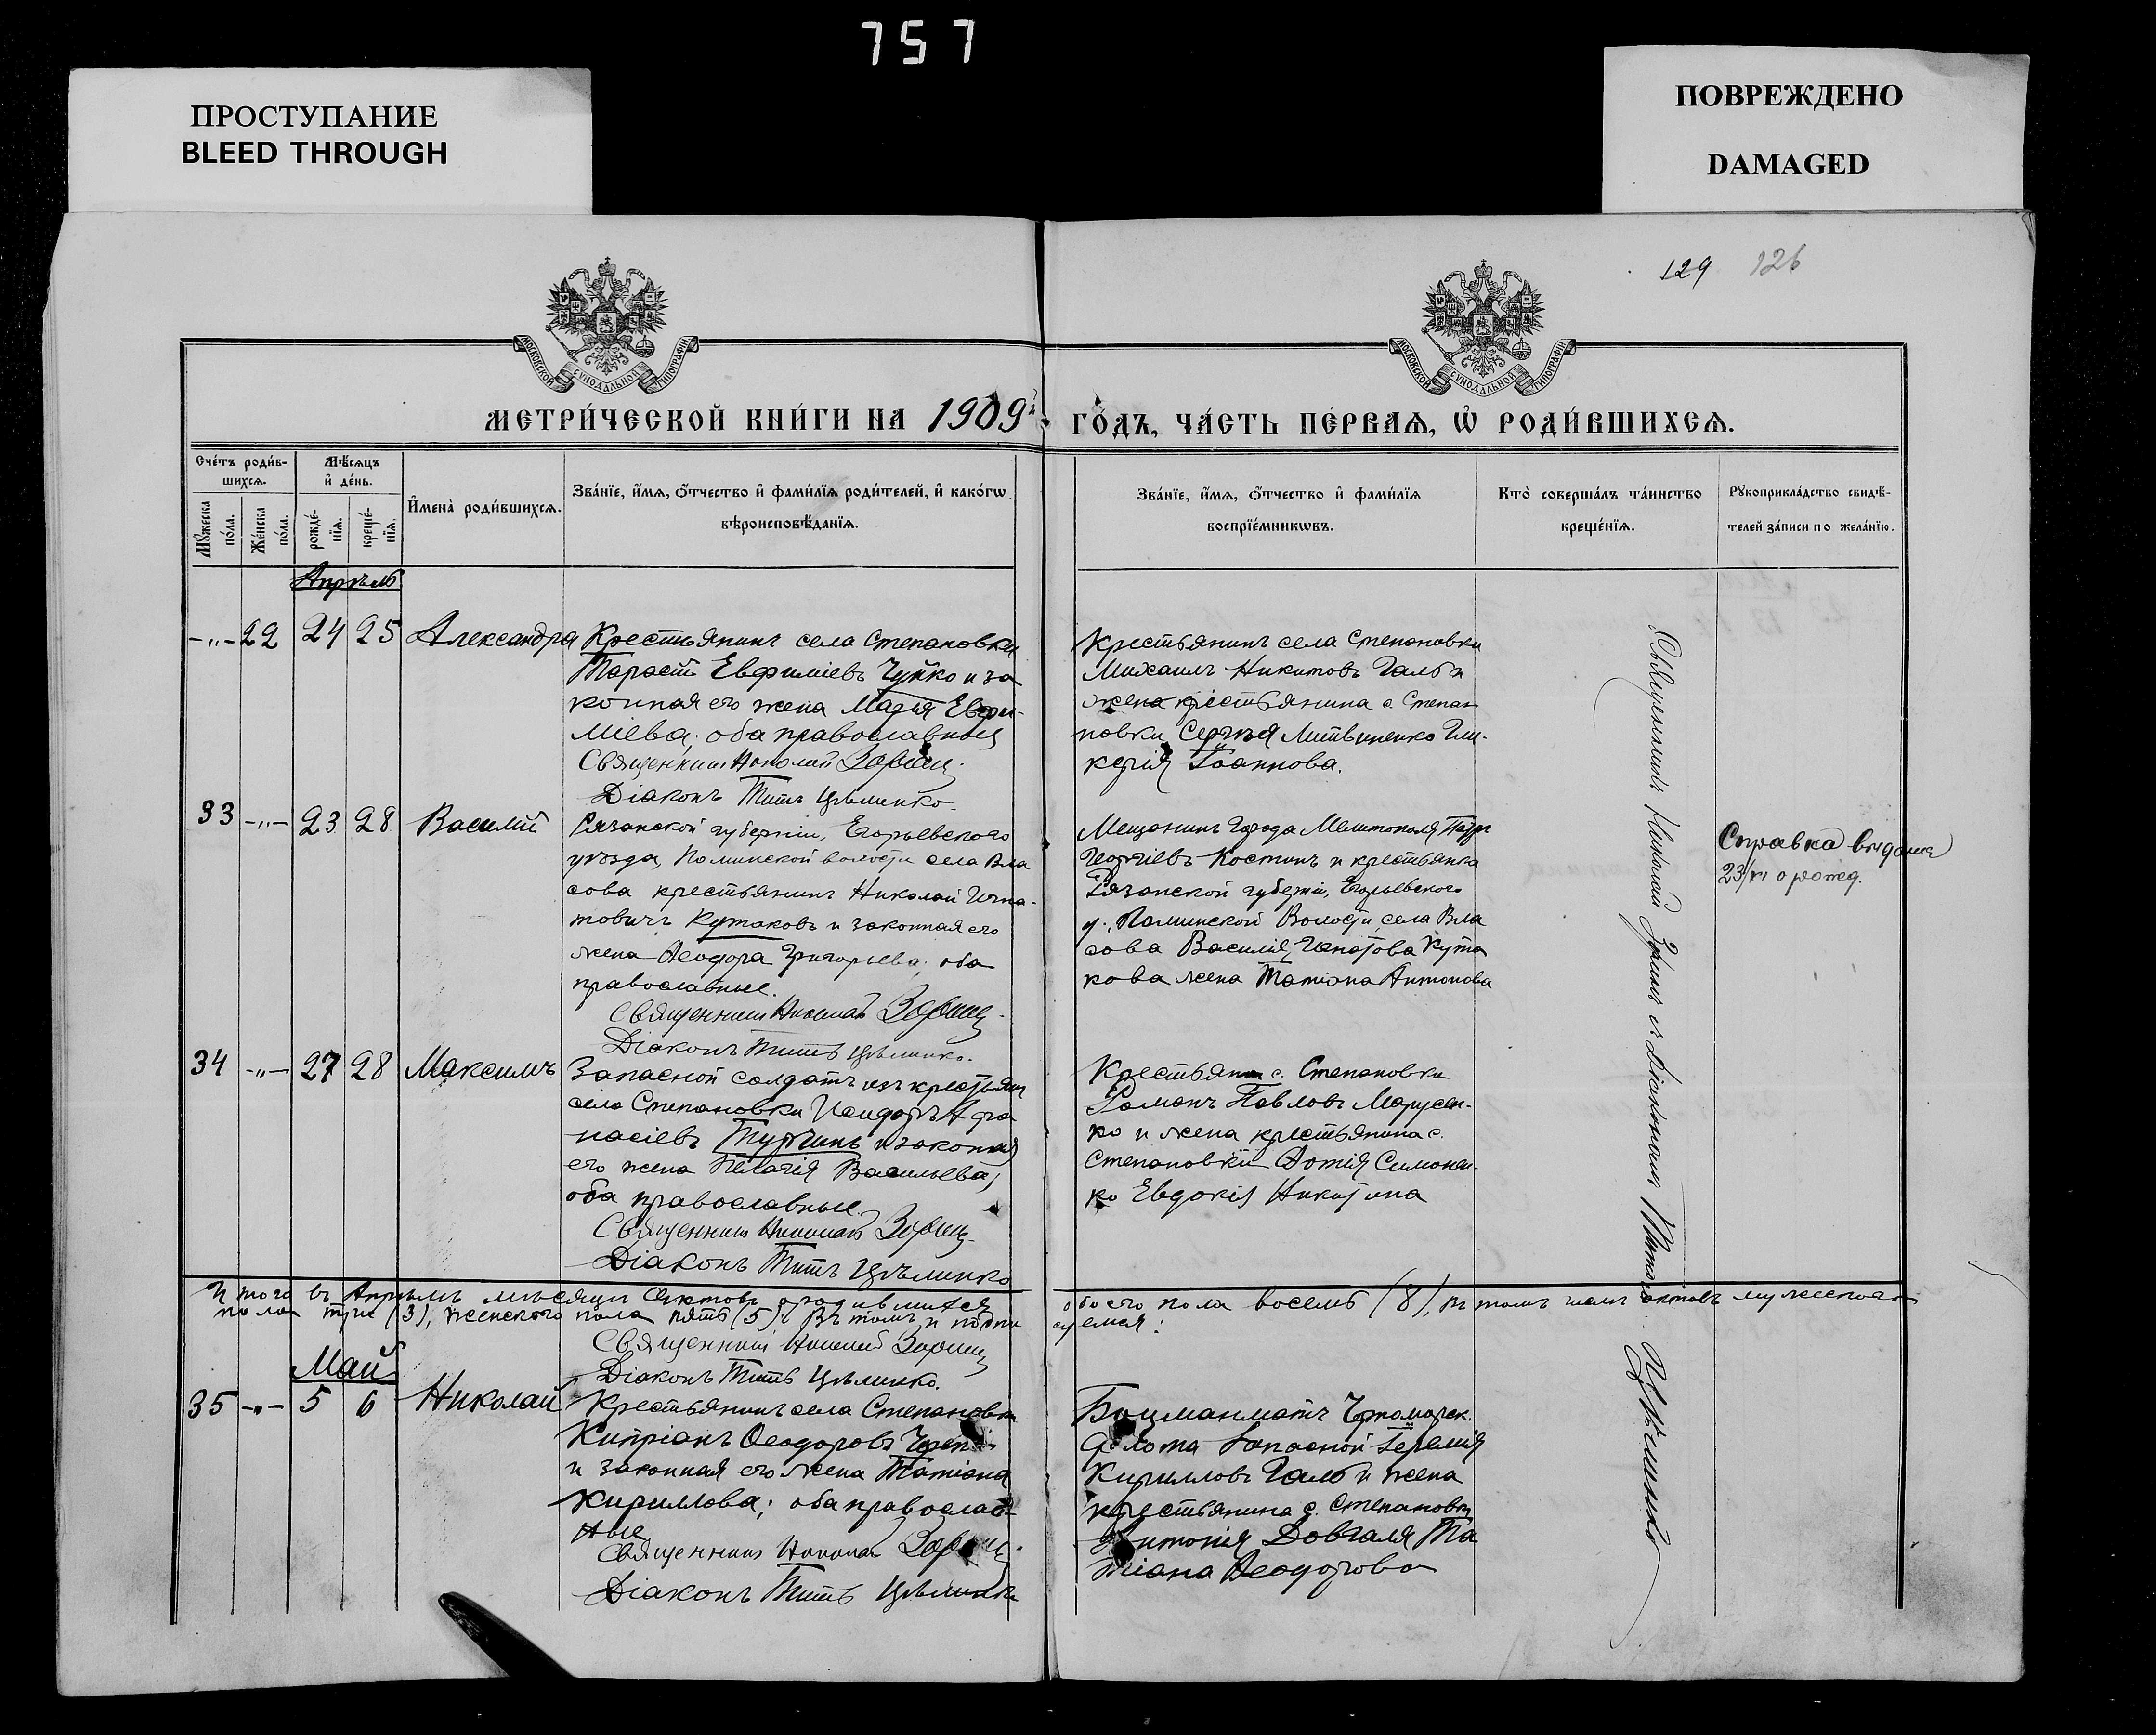 757
ПРОСТУПАНИЕ
BLEED THROUGH
ПОВРЕЖДЕНО
DAMAGED
129 126
МОСКОВСКОЙ СѴНОДАЛЬНОЙ ТИПОГРАФІИ
МОСКОВСКОЙ СѴНОДАЛЬНОЙ ТИПОГРАФІИ
МЕТРИ́ЧЕСКОЙ КНИ́ГИ НА 1909й ГО́ДЪ, ЧА́СТЬ ПЕ́РВАѦ, Ѡ҆ РОДИ́ВШИХСѦ.
Сче́тъ роди́в-
шихсѧ.
Мѣ́сѧцъ
и҆ де́нь.
Мꙋ́жеска
по́ла.
Же́нска
по́ла.
рожде́-
нїѧ.
креще́-
нїѧ.
И҆мена̀ роди́вшихсѧ.
Зва́нїе, и҆́мѧ, ѻ҆́тчество и҆ фами́лїѧ роди́телей, и҆ како́гѡ
вѣроисповѣ́данїѧ.
Зва́нїе, и҆́мѧ, ѻ҆́тчество и҆ фами́лїѧ
воспрїе́мникѡвъ.
Кто̀ соверша́лъ та́инство
креще́нїѧ.
Рꙋкоприкла́дство свидѣ́-
телей за́писи по жела́нїю.
Апрѣль
-„- 22 24 25 Александра
Крестьянинъ села Степановки
Тарасій Евфиміевъ Чуйко и за
конная его жена Марія Евфи-
міева; оба православные
Священникъ Николай Зоринъ
Діаконъ Титъ Цѣлинко.
Крестьянинъ села Степановки
Михаилъ Никитовъ Галь и
жена крестьянина с. Степан
новки Сергѣя Литвиненко Гли-
керія Іоаннова.
33 -„- 23 28 Василій
Рязанской губерніи, Егорьевского
уѣзда, Поминской волости села Вла
сова крестьянинъ Николай Игна-
товичъ Кутаковъ и законная его
жена Ѳеодора Григорьева; оба
православные.
Священникъ Николай Зоринъ
Діаконъ Титъ Цѣлинко.
Мещанинъ города Мелитополя Петръ
Георгіевъ Костинъ и крестьянка
Рязанской губерніи, Егорьевского
у., Поминской Волости, села Вла
сова Василія Игнатова Кута
кова жена Татіана Антонова
Справка выдана
23/VI о рожд.
34 -„- 27 28 Максимъ
Запасной солдатъ изъ крестьянъ
села Степановки Исидоръ Афа
насіевъ и законная
его жена Пелагія Васильева;
оба православные.
Священникъ Николай Зоринъ
Діаконъ Титъ Цѣлинко
Крестьянин с. Степановки
Романъ Павловъ Марусен-
ко и жена крестьянина с.
Степановки Фотія Симонен-
ко Евдокія Никитина
Итого въ Апрѣлѣ мѣсяцѣ актовъ о родившихся обоего пола восемь (8), въ томъ числѣ актовъ мужескаго
пола три (3), женского пола пять (5). Въ томъ и подпи суемся:
Священникъ Николай Зоринъ
Діаконъ Титъ Цѣлинко.
Май
35 -„- 5 6 Николай
Крестьянинъ села Степановки
Кипріанъ Ѳеодоровъ
и законная его жена Татіана
Кириллова; оба православ-
ные
Священникъ Николай Зоринъ
Діаконъ Титъ Цѣлинко
Боцманматъ Черноморск.
флота запасной Іеремія
Кирилловъ Галь и жена
крестьянина с. Степановки
Антонія Довгаля Та
тіана Ѳеодорова
Священникъ Николай Зоринъ съ діакономъ Титомъ Цѣлинко